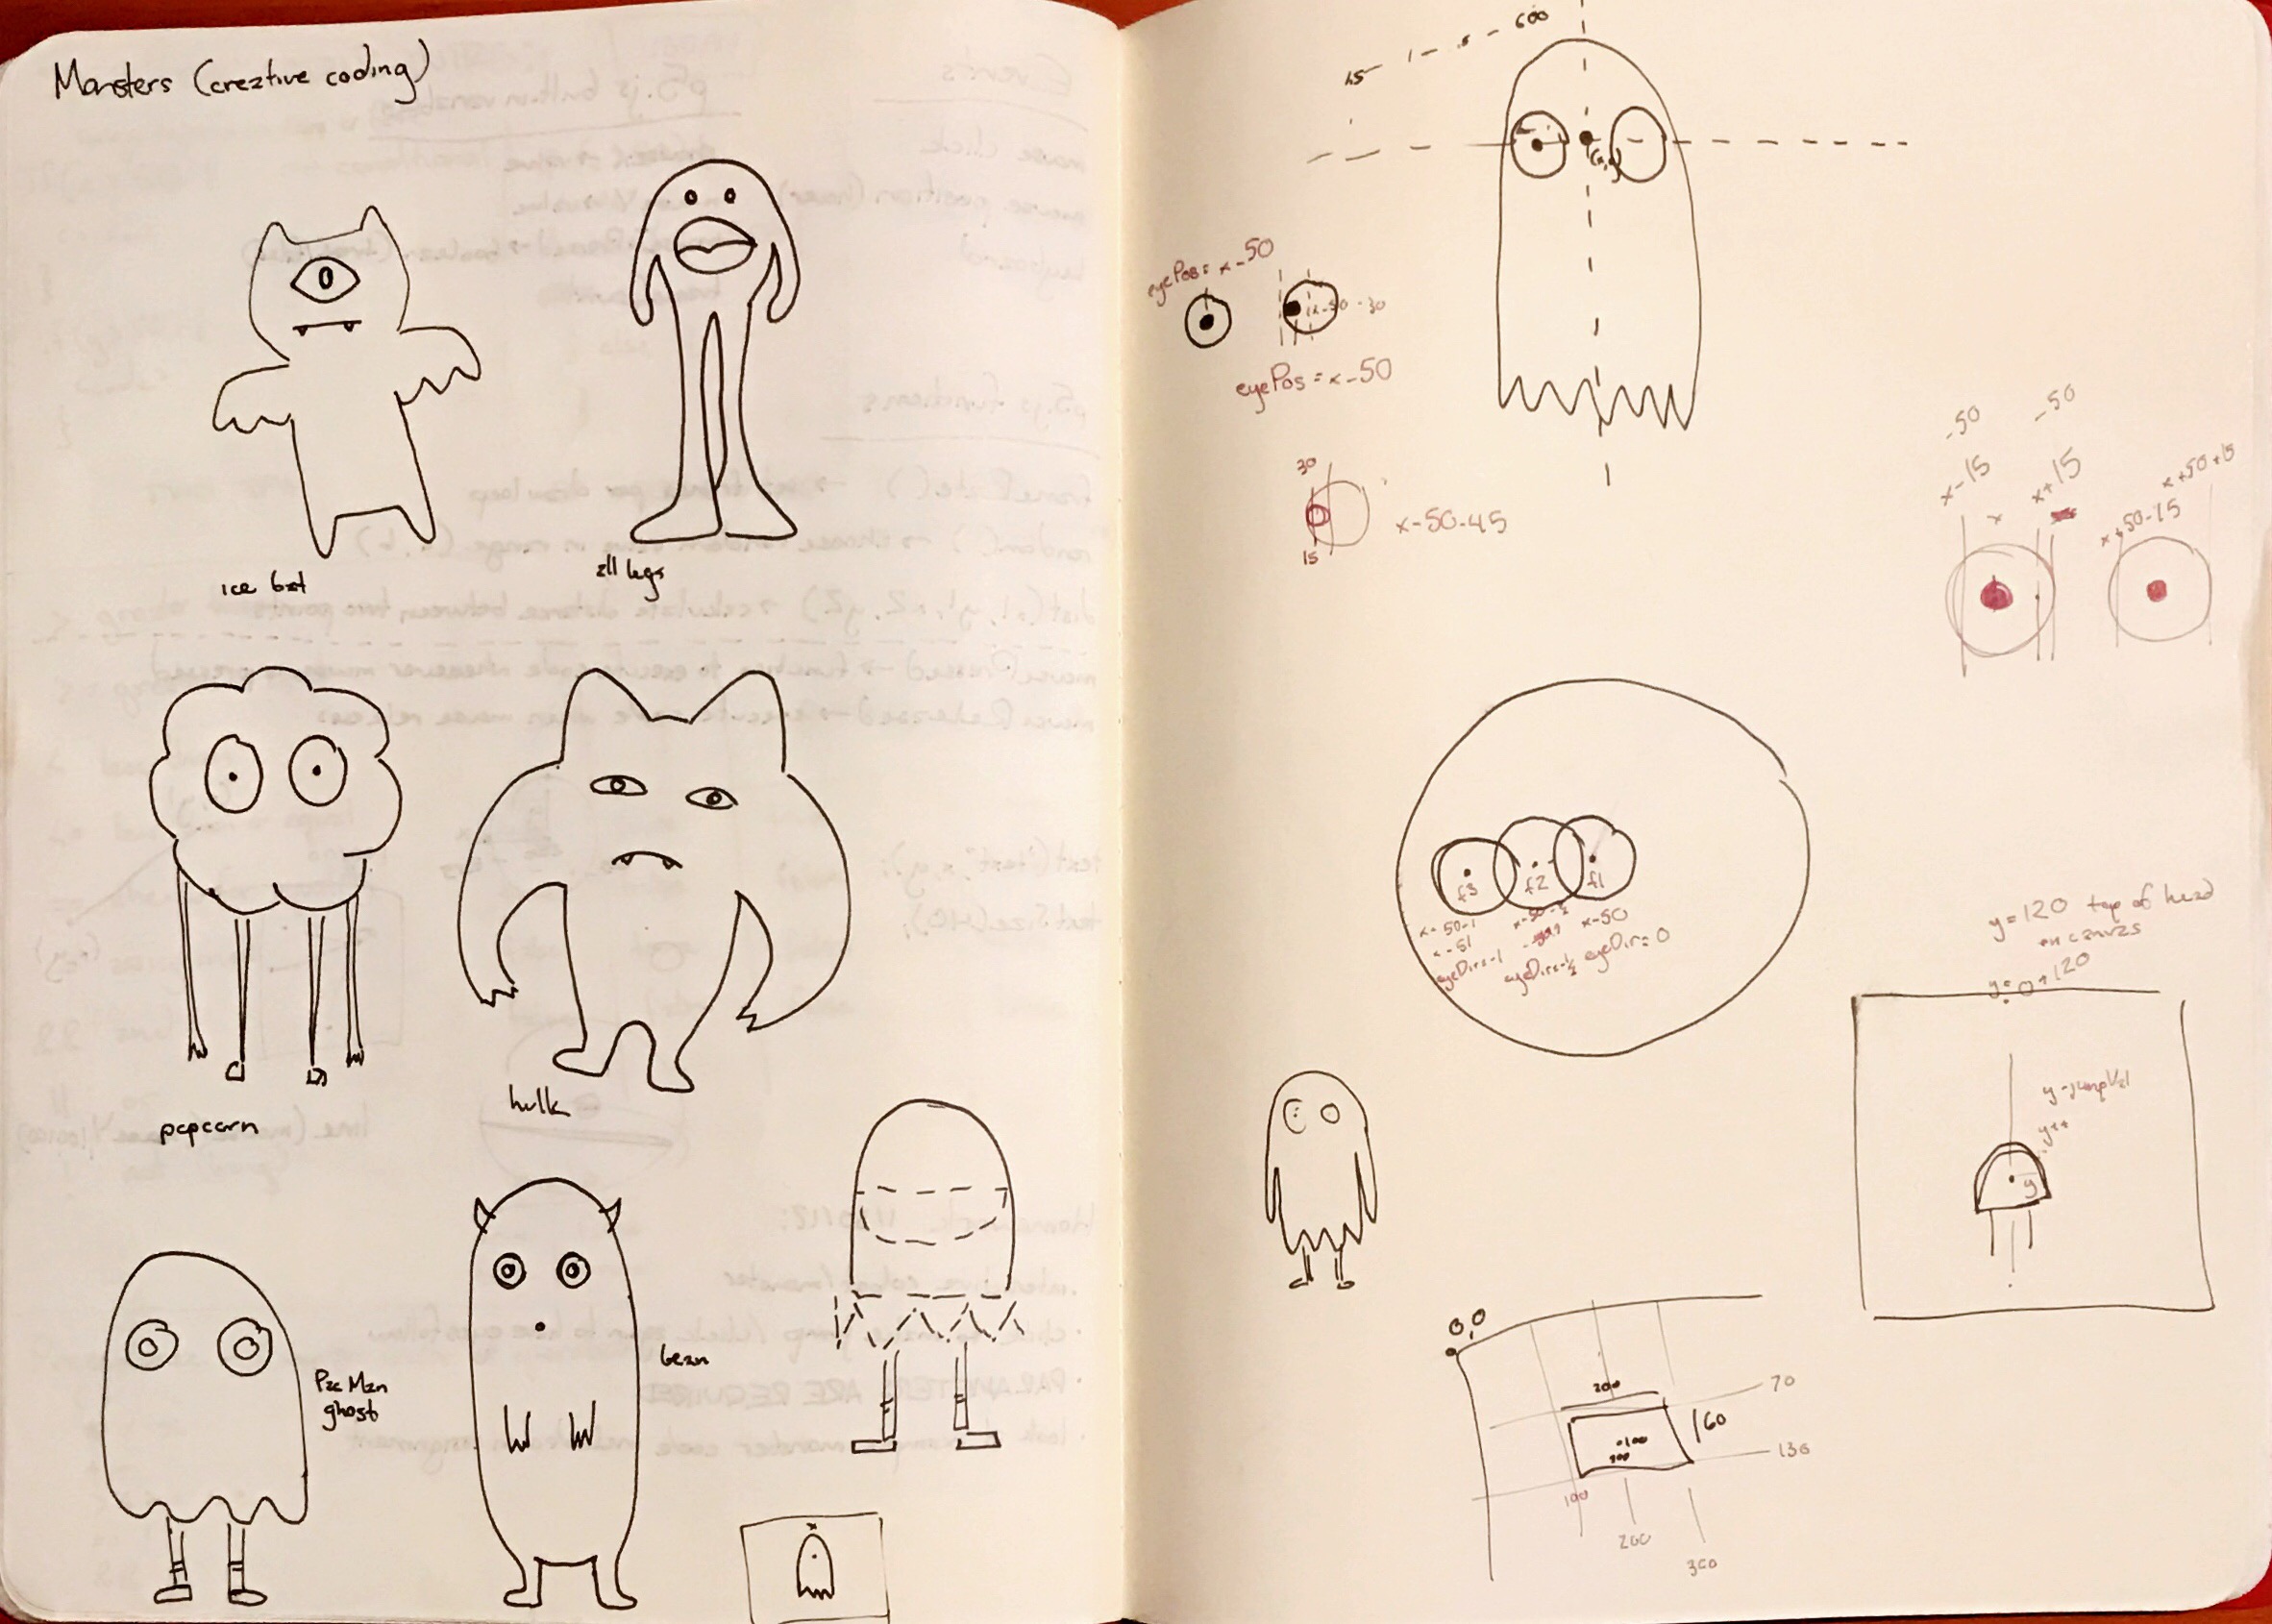 Monsters (creative coding)
ice bat
all legs
popcorn
hulk
Pac Man
ghost
bean
x
600
15
(x,y)
eyePos = x-50
x-50-30
eyePos = x-50
30
15
x-50-45
-50
-50
x-15
x+15
x
x+50-15
x+50+15
f3
f2
f1
x-50-1
x-50
x-51
eyeDir=-1
eyeDir=-½
eyeDir=0
y=120 top of head
on canvas
y=0+120
y-jumpVal
y++
y
0,0
200
70
160
130
100
200
300